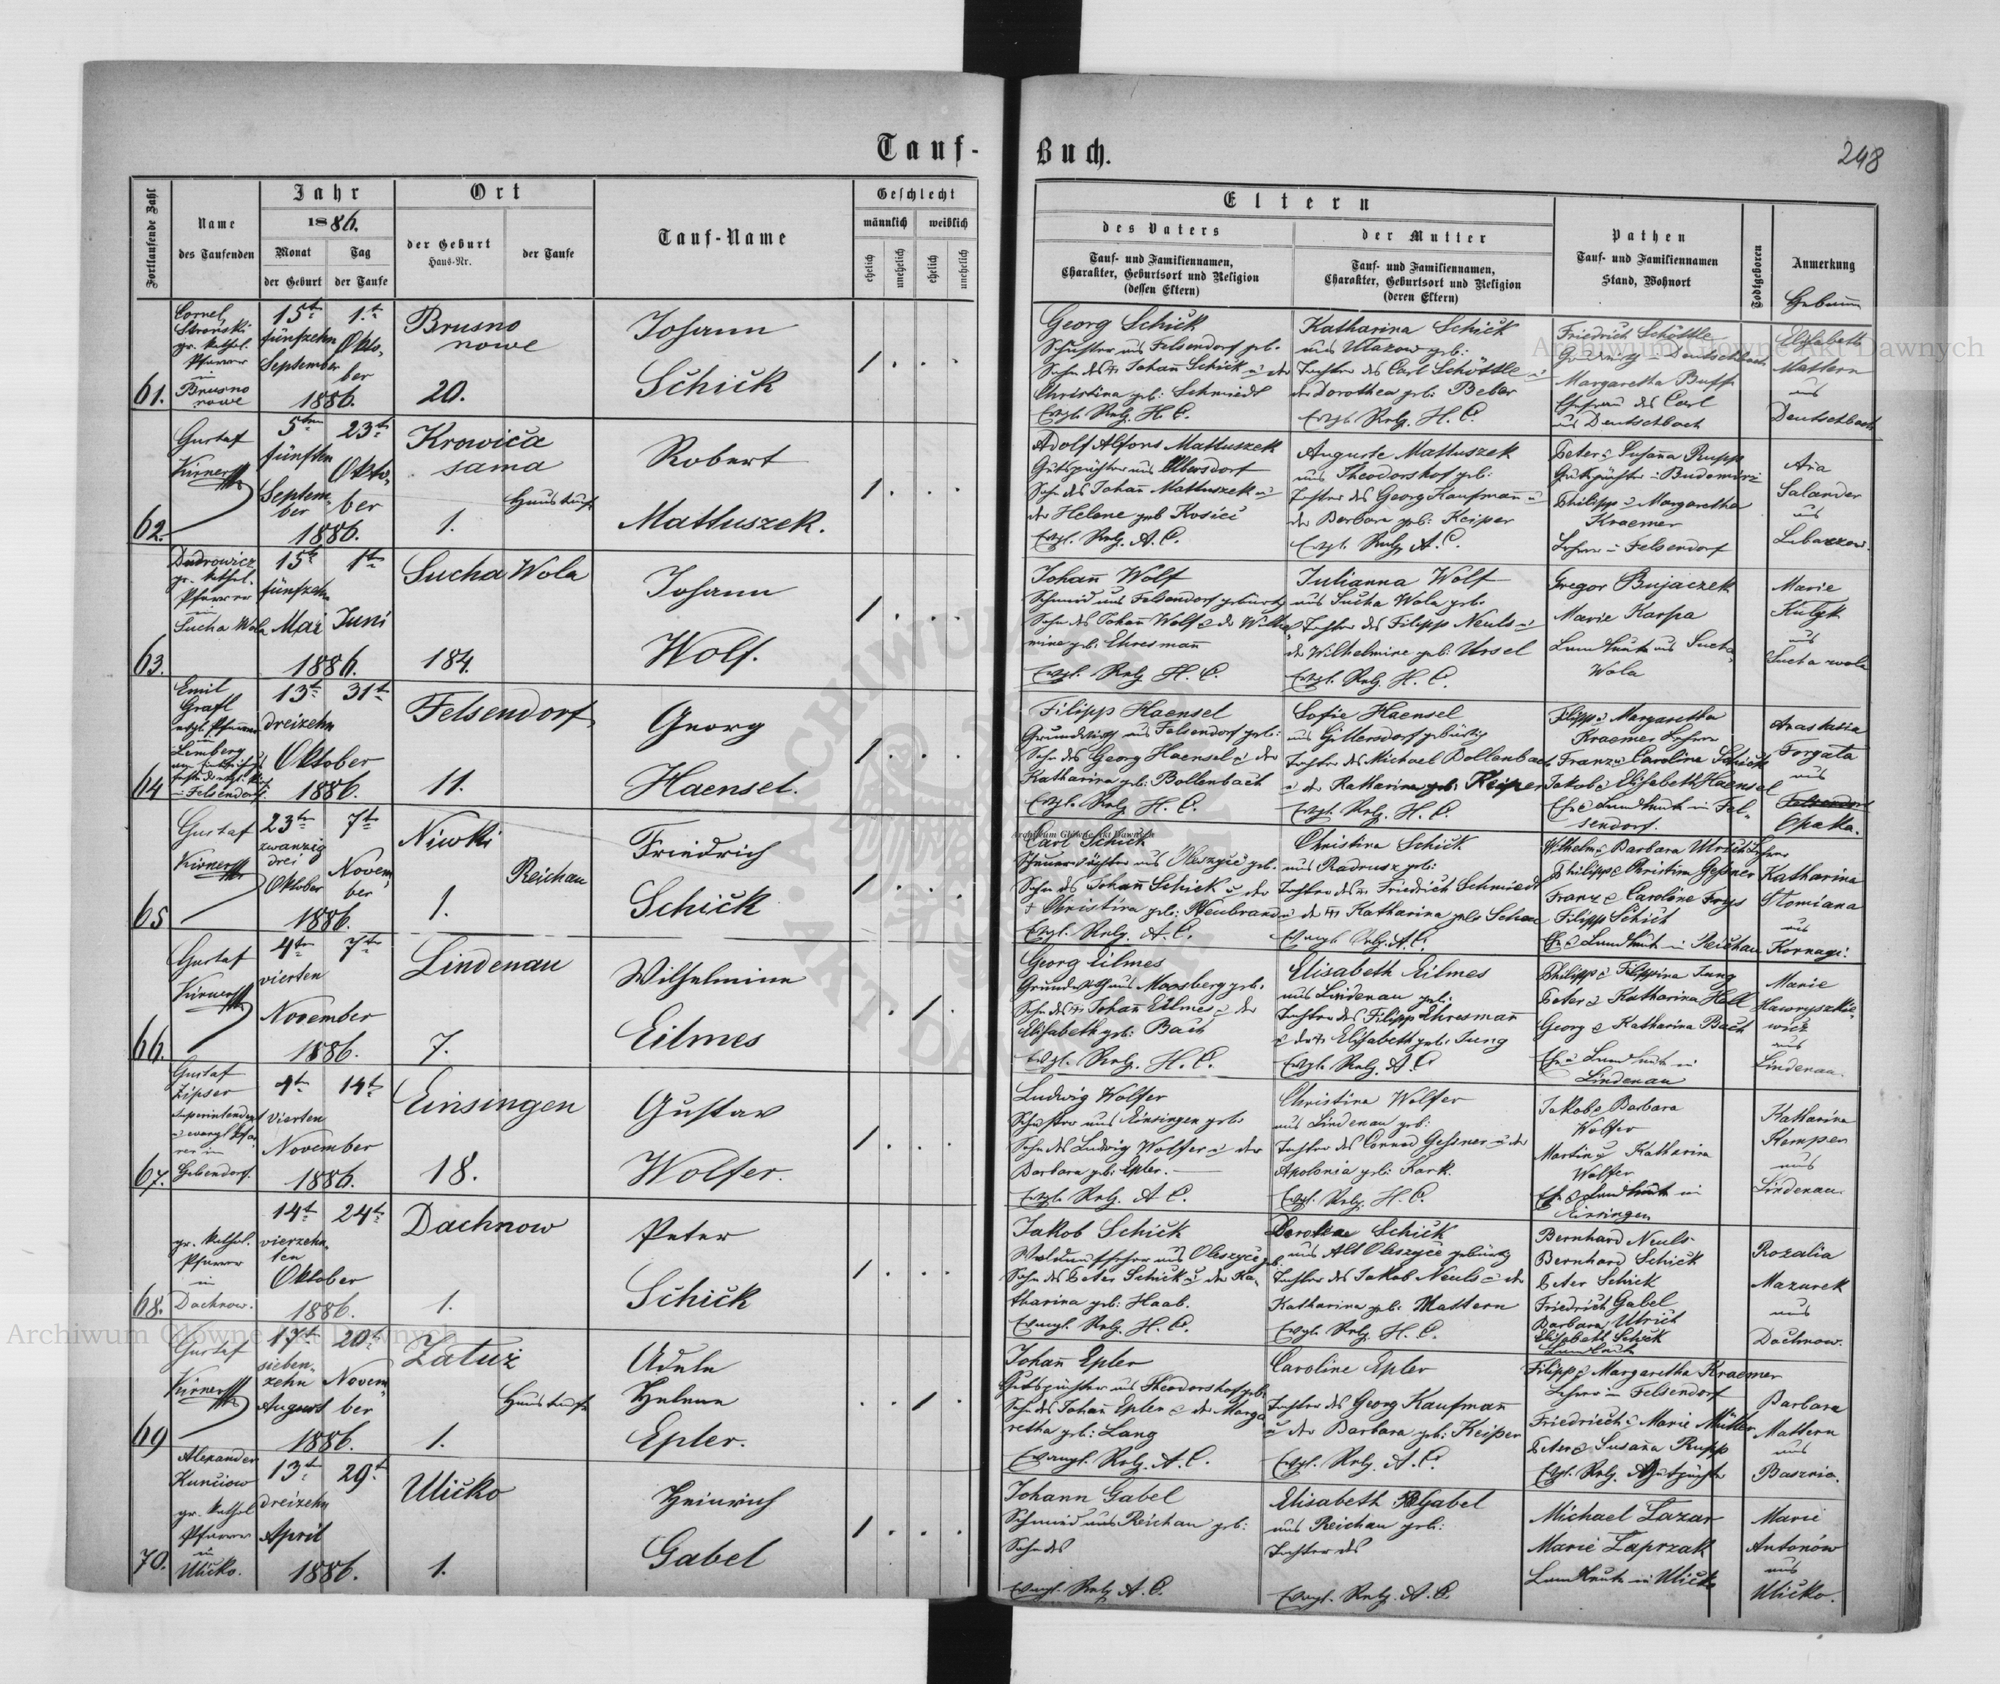 Tauf-Buch.
248
Fortlaufende Zahl
Name
des Taufenden
Jahr
1886.
Monat
der Geburt
Tag
der Taufe
Ort
der Geburt
Haus-Nr.
der Taufe
Tauf-Name
Geschlecht
männlich
weiblich
ehelich
unehelich
ehelich
unehelich
Eltern
des Vaters
Tauf- und Familiennamen,
Charakter, Geburtsort und Religion
(dessen Eltern)
der Mutter
Tauf- und Familiennamen,
Charakter, Geburtsort und Religion
(deren Eltern)
Pathen
Tauf- und Familiennamen
Stand, Wohnort
Todtgeboren
Anmerkung
61.
Cornel
gr. kathol.
Pfarrer
in
Brusno
nowe
15te 1te
fünfzehn Okto-
September ber
1886.
Brusno
nowe
20.
Johann
Schick
Georg Schick
Schuster aus Felsendorf geb.
Sohn des Johann Schick u der
Christina geb: Schmiedt
Evgl. Relg. H. C.
Katharina Schick
aus Utazow geb:
Tochter des Carl Schöttle u
der Dorothea geb: Beber
Evgl. Relg. H. C.
Friedrich Schöttle
Deutschbach
Margaretha Buff
Ehefrau des Carl
aus Deutschbach
Elisabeth
Mattern
aus
Deutschbach
62.
Gustaf
Kirner
5ten 23te
fünften Okto-
Septem- ber
ber
1886.
Krowica
sama
Haustaufe
1.
Robert
Mattuszek.
Adolf Alfons Mattuszek
Gutspächter aus Olbersdorf
Sohn des Johann Mattuszek u
der Helene geb Kosici
Evgl. Relg. A. C.
Auguste Mattuszek
aus Theodorshof geb:
Tochter des Georg Kaufmann u
der Barbara geb: Keiper
Evgl. Relg. A. C.
Peter u Susanna Rupp
Gutspächter in Budomierz
Philipp u Margaretha
Kraemer
Lehrer in Felsendorf
Salander
aus
Lubaczow.
63.
Dudrowicz
gr. kathol.
Pfarrer
in
Sucha Wola
15te 1te
fünfzehn
Mai Juni
1886.
Sucha Wola
184.
Johann
Wolf.
Johann Wolf
Schmied aus Felsendorf gebürtig
Sohn des Johann Wolf u der Wilhel-
mine geb: Ehresmann
Evgl. Relg. H. C.
Julianna Wolf
aus Sucha Wola geb.
Tochter des Filipp Neuls u
der Wilhelmine geb: Ursel
Evgl. Relg. H. C.
Gregor Bujaczek
Marie Karpa
Landleute aus Sucha
Wola
Marie
Kulyk
aus
Sucha wola
64
Emil
Grafl
evgl. Pfarrer
in
Lemberg
in Felsendorf.
13te 31te
dreizehn
Oktober
1886.
Felsendorf
11.
Georg
Haensel.
Filipp Haensel
Grundwirth aus Felsendorf geb:
Sohn des Georg Haensel u der
Katharina geb: Bollenbach
Evgl. Relg. H. C.
Sofie Haensel
aus Gittersdorf gebürtig
Tochter des Michael Bollenbach
u der Katharina geb: Keiper
Evgl. Relg. H. C.
Filipp u Margaretha
Kraemer Lehrer
Franz u Caroline Schick
Jakob u Elisabeth Haensel
Ehe u Landleute in Fel-
sendorf.
Anastasia
Forgata
aus
Felsendorf
Opaka.
65
Gustaf
Kirner
23te 7te
zwanzig
drei Novem-
Oktober ber
1886.
Niwki
Reichau
1.
Friedrich
Schick
Carl Schick
aus Oleszyce geb.
Sohn des Johann Schick u der
† Christina geb: Neubrand
Evgl. Relg. A. C.
Christina Schick
aus Radrusz geb:
Tochter des Friedrich Schmiedt
u der Katharina geb. Schau
Evangl. Relg. A. C.
Wilhelm u Barbara Ulrich Lehrer
Philipp u Christina Gessner
Franz u Caroline Frys
Filipp Schick
Ehe u Landleute in Reichau
Katharina
Tomiana
aus
Kornagi.
66.
Gustaf
Kirner
4te 7te
vierten
November
1886.
Lindenau
7.
Wilhelmine
Eilmes
Georg Eilmes
Grundwirth aus Moosberg geb.
Sohn des Johann Eilmes u der
Elisabeth geb: Bach
Evgl. Relg. H. C.
Elisabeth Eilmes
aus Lindenau geb:
Tochter des Filipp Ehresmann
u der Elisabeth geb. Jung
Evgl. Relg. A. C.
Philipp u Filippina Jung
Peter u Katharina Hell
Georg u Katharina Bach
Ehe u Landleute in
Lindenau
Marie
Hawryszkie-
wicz
aus
Lindenau.
67.
Gustaf
Zipser
Superintendent
u evangl. Pfar-
rer in
Gelsendorf.
4te 14te
vierten
November
1886.
Einsingen
18.
Gustav
Wolfer.
Ludwig Wolfer
Schuster aus Einsingen geb.
Sohn des Ludwig Wolfer u der
Barbara geb: Epler.
Evgl. Relg. A. C.
Christina Wolfer
aus Lindenau geb:
Tochter des Conrad Gessner u der
Apolonia geb: Kark.
Evgl. Relg. H. C.
Jakob u Barbara
Wolfer
Martin u Katharina
Wolfer
Ehe u Landleute in
Einsingen
Katharina
Kemper
aus
Lindenau.
68.
gr. kathol.
Pfarrer
in
Dachnow.
14te 24te
vierzehn-
ten
Oktober
1886.
Dachnow
1.
Peter
Schick
Jakob Schick
Waldaufseher aus Oleszyce geb.
Sohn des Peter Schick u der Ka-
tharina geb: Haab.
Evangl. Relg. H. C.
Dorothea Schick
aus Alt Oleszyce gebürtig
Tochter des Jakob Neuls u der
Katharina geb: Mattern
Evgl. Relg. H. C.
Bernhard Neuls
Bernhard Schick
Peter Schick
Friedrich Gabel
Barbara Ulrich
Elisabeth Schick
Landleute
Rozalia
Mazurek
aus
Dachnow.
69
Gustaf
Kirner
17te 20te
sieben-
zehn Novem-
August ber
1886.
Załuż
Haustaufe
1.
Adele
Helene
Epler.
Johann Epler
Gutspächter aus Theodorshof geb.
Sohn des Johann Epler u der Marga-
retha geb: Lang
Evangl. Relg. A. C.
Caroline Epler
Tochter des Georg Kaufmann
u der Barbara geb: Keiper
Evgl. Relg. A. C.
Filipp u Margaretha Kraemer
Lehrer in Felsendorf
Friedrich u Marie Müller
Peter u Susanna Rupp
Evgl. Relg. Gutspächter
Barbara
Mattern
aus
Basznia.
70.
Alexander
Kunciow
gr. kathol
Pfarrer
in
Ulicko.
13te 29te
dreizehn
April
1886.
Ulicko
1.
Heinrich
Gabel
Johann Gabel
Schmied aus Reichau geb:
Sohn des
Evangl. Relg. A. C.
Elisabeth Gabel
aus Reichau geb:
Tochter des
Evangl. Relg. A. C.
Michael Lazar
Marie Zaprzak
Landleute in Ulicko
Marie
Antonów
aus
Ulicko.
Archiwum Główne Akt Dawnych
Archiwum Główne Akt Dawnych
Archiwum Główne Akt Dawnych